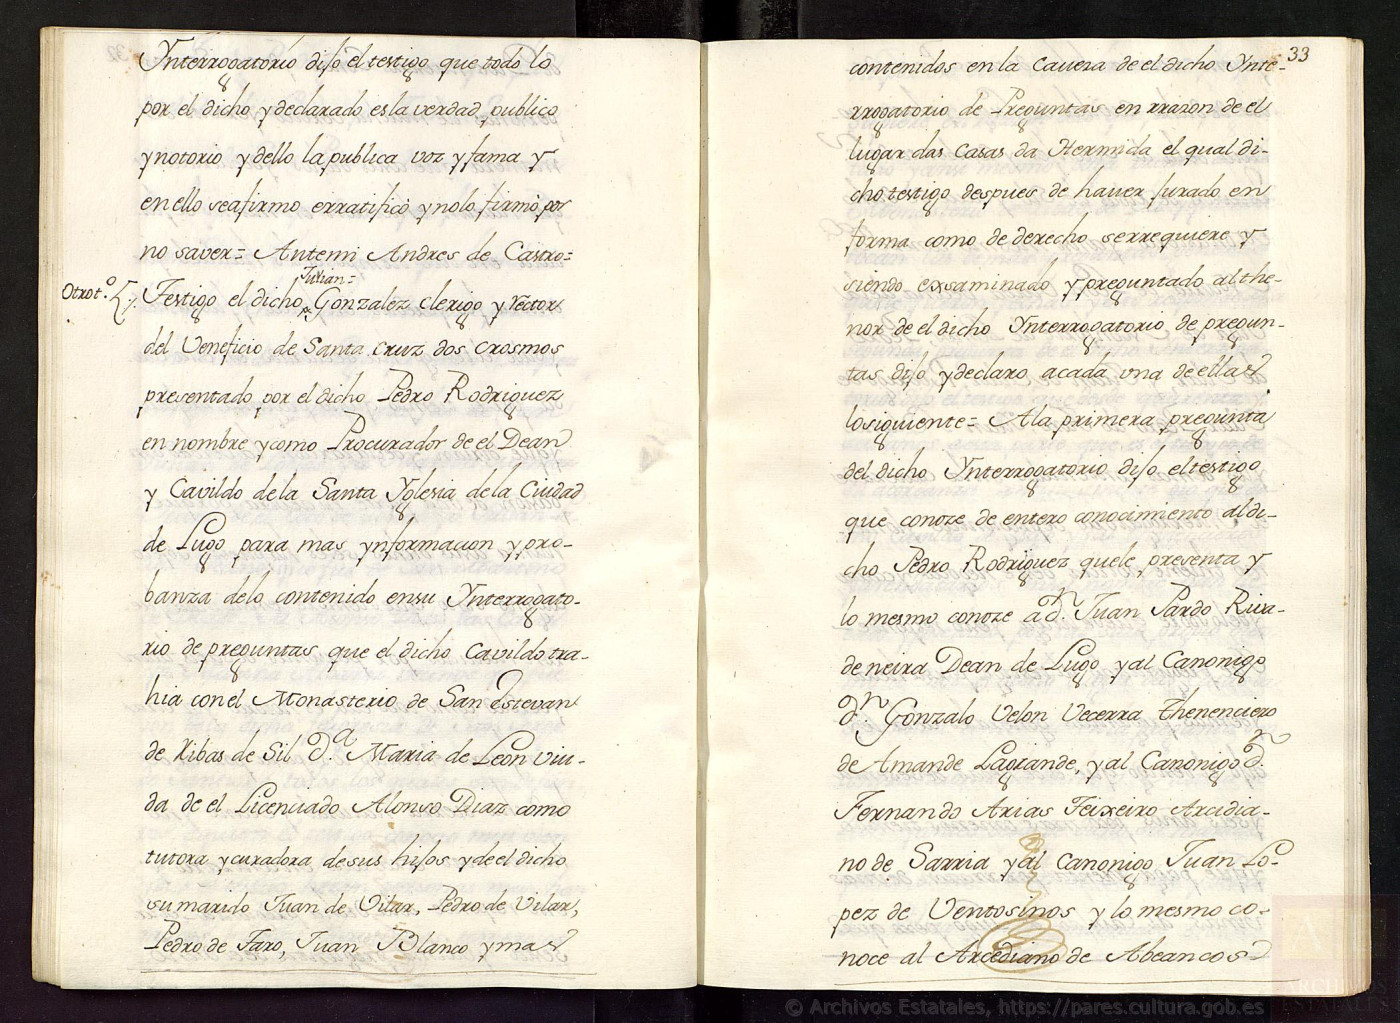 Ynterrogatorio dijo el testigo que todo lo
por el dicho y declarado es la verdad publico
y notorio y dello la publica voz y fama y
en ello se afirmo erratificò y nolo firmò por
no saver= Antemi Andres de Castro=
Julian=
Otro t.º Testigo el dicho Gonzalez clerigo y rector
del Veneficio de Santa Cruz dos Crosmos
presentado por el dicho Pedro Rodriguez
en nombre y como Procurador de el Dean
y Cavildo de la Santa Yglesia de la Ciudad
de Lugo para mas ynformacion y pro-
banza delo contenido ensu Ynterrogato-
rio de preguntas que el dicho Cavildo tra-
hia con el Monasterio de San Estevan
de Ribas de Sil D.ª Maria de Leon viu-
da de el Licenciado Alonso Diaz como
tutora y curadora de sus hijos y de el dicho
su marido Juan de Vilar, Pedro de Vilar,
Pedro de Faro, Juan Blanco y mas
33
contenidos en la Caveza de el dicho Ynte-
rrogatorio de Preguntas en rrazon de el
lugar das Casas da Hermida el qual di-
cho testigo despues de haver jurado en
forma como de derecho serrequiere y
siendo exsaminado y preguntado al the-
nor de el dicho Ynterrogatorio de pregun-
tas dijo y declaro acada una de ellas
lo siguiente= A la primera pregunta
del dicho Ynterrogatorio dijo el testigo
que conoze de entero conocimiento al di-
cho Pedro Rodriguez quele presenta y
lo mesmo conoze a d.n Juan Pardo Riva-
de neira Dean de Lugo y al Canonigo
d.n Gonzalo Velon Vecerra thenenciero
de Amande Lagrande, y al Canonigo d.n
Fernando Arias Teixeiro Arcidia-
no de Sarria y al Canonigo Juan Lo-
pez de Ventosinos y lo mesmo co-
noce al Arcediano de Abeancos
© Archivos Estatales, https://pares.cultura.gob.es